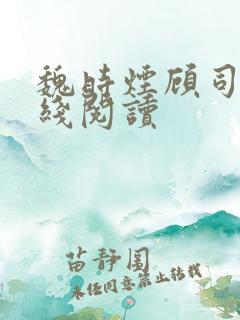 魏時煙顾司
綫閱讀
苗静围
未经同意禁止转载